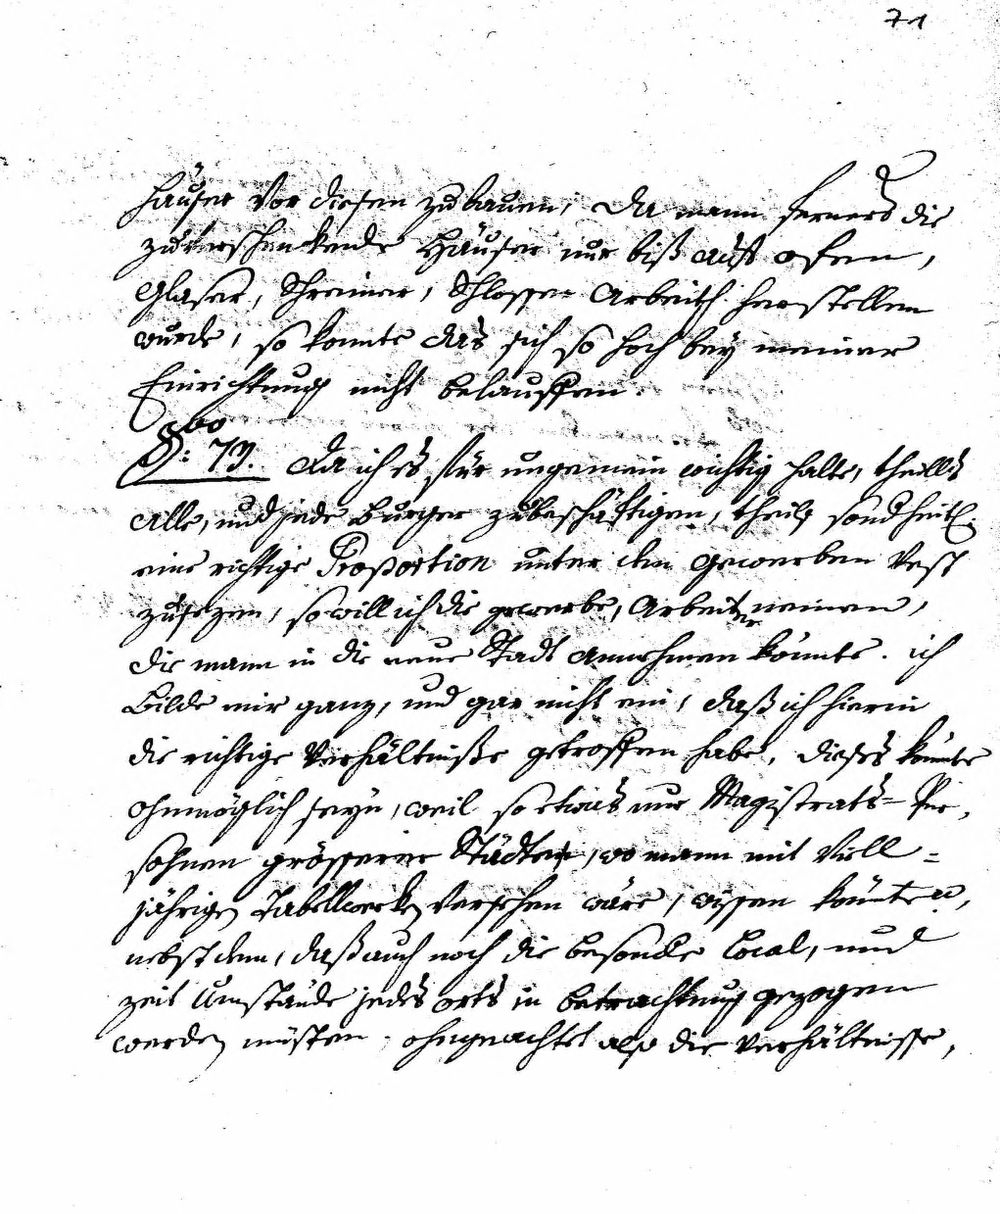 71
häuser vor diesen zu bauen, da mann ferners die
zuverschenkende Häuser nur biß auf ofen,
Glaser, Schreiner, Schlosser Arbeith herstellen
wurde, so konnte das sich so hoch bey meiner
Einrichtung nicht belauffen.
§bo: 73. Da ich es für ungemein wichtig halte, theills
alle, und jede burger zubeschäftigen, theils sondheitl.
eine richtige Proportion unter den gewerben vest
zusezen, so will ich die gewerbe, Arbeiter nennen,
die mann in die neue Stadt annehmen könnte. ich
bilde mir ganz, und gar nicht ein, daß ich hierin
die richtige Verhältniße getroffen habe, dieses könnte
ohnmöglich seyn, weil so etwas nur Magistrats= Per,
sohnen grösserer Städten, wo mann mit viell=
jährigen Tabellwerken versehen wäre, wissen könnten,
nebst dem, daß auch noch die besondere Local, und
zeit Umstände jedes orts in betrachtung gezogen
werden müsten. ohngeachtet also die Verhältnisse,